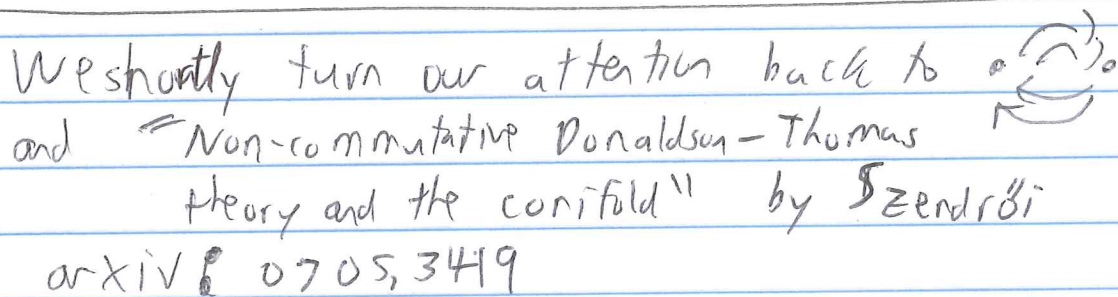 We shortly turn our attention back to
and "Non-commutative Donaldson-Thomas
theory and the conifold" by Szendrői
arxiv: 0705.3419